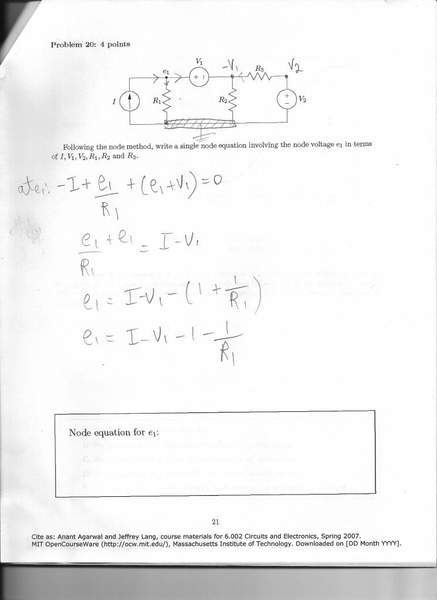 Problem 20: 4 points
V1
-V1
R3
V2
e1
I
R1
R2
V2
Following the node method, write a single node equation involving the node voltage e1 in terms
of I, V1, V2, R1, R2 and R3.
at e1: -I + e1/R1 + (e1+V1) = 0
e1/R1 + e1 = I - V1
e1 = I - V1 - (1 + 1/R1)
e1 = I - V1 - 1 - 1/R1
Node equation for e1:
21
Cite as: Anant Agarwal and Jeffrey Lang, course materials for 6.002 Circuits and Electronics, Spring 2007.
MIT OpenCourseWare (http://ocw.mit.edu/), Massachusetts Institute of Technology. Downloaded on [DD Month YYYY].